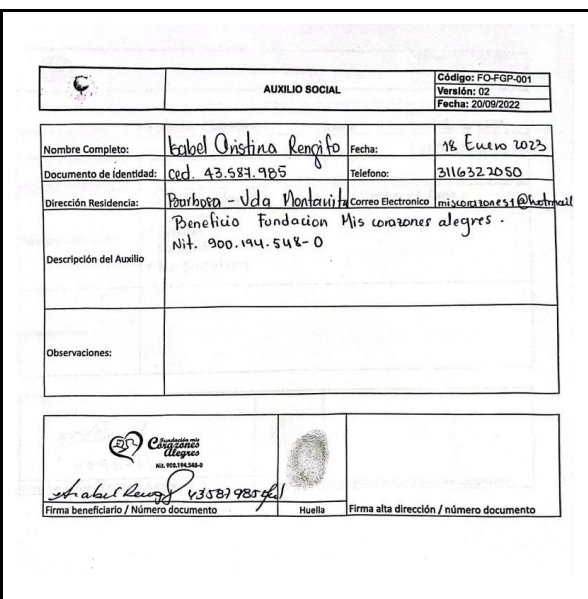 AUXILIO SOCIAL
Código: FO-FGP-001
Versión: 02
Fecha: 20/09/2022
Nombre Completo: Isabel Cristina Rengifo Fecha: 18 Enero 2023
Documento de Identidad: Ced. 43.587.985 Telefono: 3116322050
Dirección Residencia: Barbosa - Vda Montañita Correo Electronico miscorazones1@hotmail
Descripción del Auxilio
Beneficio Fundacion Mis corazones alegres.
Nit. 900.194.548-0
Observaciones:
Fundación mis
Corazones
Alegres
Nit. 900.194.548-0
43587985
Firma beneficiario / Número documento Huella Firma alta dirección / número documento